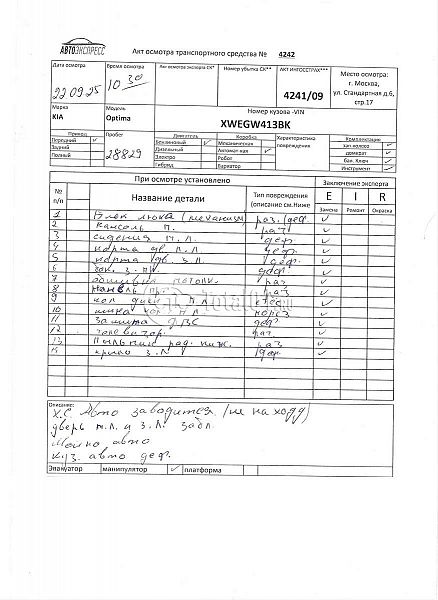 АВТОЭКСПРЕСС
Акт осмотра транспортного средства № 4242
Дата осмотра
Время осмотра
Акт осмотра страховой СК*
Номер убытка СК**
АКТ ИНГОССТРАХ***
Место осмотра:
г. Москва,
ул. Стандартная д.6,
стр.17
22 09 25
10 30
4241/09
Марка
Модель
Номер кузова -VIN
KIA
Optima
XWEGW413BK
Привод
Пробег
Двигатель
Коробка
Характеристика
повреждения
Комплектация
Передний ✓
Задний
Полный
28829
Бензиновый ✓
Дизельный
Электро
Гибрид
Механическая
Автоматная ✓
Робот
Вариатор
хат.колесо ✓
домкрат ✓
бал. Ключ ✓
Инструмент ✓
При осмотре установлено
Заключение эксперта
№
п/п
Название детали
Тип повреждения
(описание см.Ниже
E I R
Замена Ремонт Окраска
1 Блок люка (механизм) раз. деф ✓
2 Консоль п. раз ✓
3 сидения п.л. деф ✓
4 карта дв. п.л. деф ✓
5 карта дв. з.л. деф ✓
6 деф ✓
7 обшивка потолк. раз ✓
8 панель пр. раз ✓
9 кол диск п.л ✓
10 шина кол п.л. порез ✓
11 Защита ДВС деф ✓
12 раз ✓
13 Пыльник рад. ниж. раз ✓
14 крыло з.л деф ✓
Описание:
Х.С Авто заводится (не на ходу)
дверь п.л. и з.л. забл.
авто
куз. авто деф.
Эвакуатор манипулятор ✓ платформа